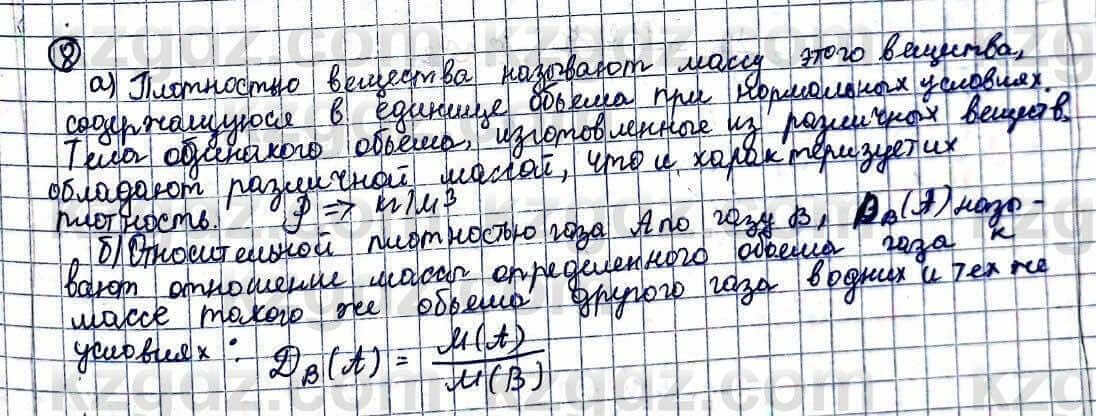 8
а) Плотностью вещества называют массу этого вещества,
содержащуюся в единице объема при нормальных условиях.
Тела одинакого объема, изготовленные из различных веществ,
обладают различной массой, что и характеризует их
плотность. ρ => кг/м³
б) Относительной плотностью газа А по газу В, D_B(A) назы-
вают отношение массы определенного объема газа к
массе такого же объема другого газа в одних и тех же
условиях: D_B(A) = M(A)/M(B)